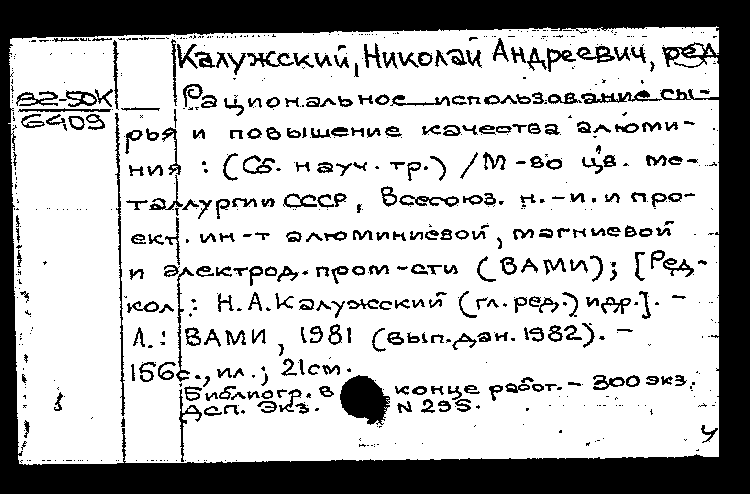 Калужский, Николай Андреевич, ред
82-50К
6409
Рациональное использование сы-
рья и повышение качества алюми-
ния : (Сб. науч. тр.) / М-во цв. ме-
таллургии СССР, Всесоюз. н.-и. и про-
ект. ин-т алюминиевой, магниевой
и электрод. пром-сти (ВАМИ); [Ред-
кол.: Н.А.Калужский (гл. ред.) и др.]. –
Л.: ВАМИ, 1981 (вып. дан. 1982). –
156с., ил.; 21см.
Библиогр. в конце работ. – 300 экз.
Дсп. Экз. N 295.